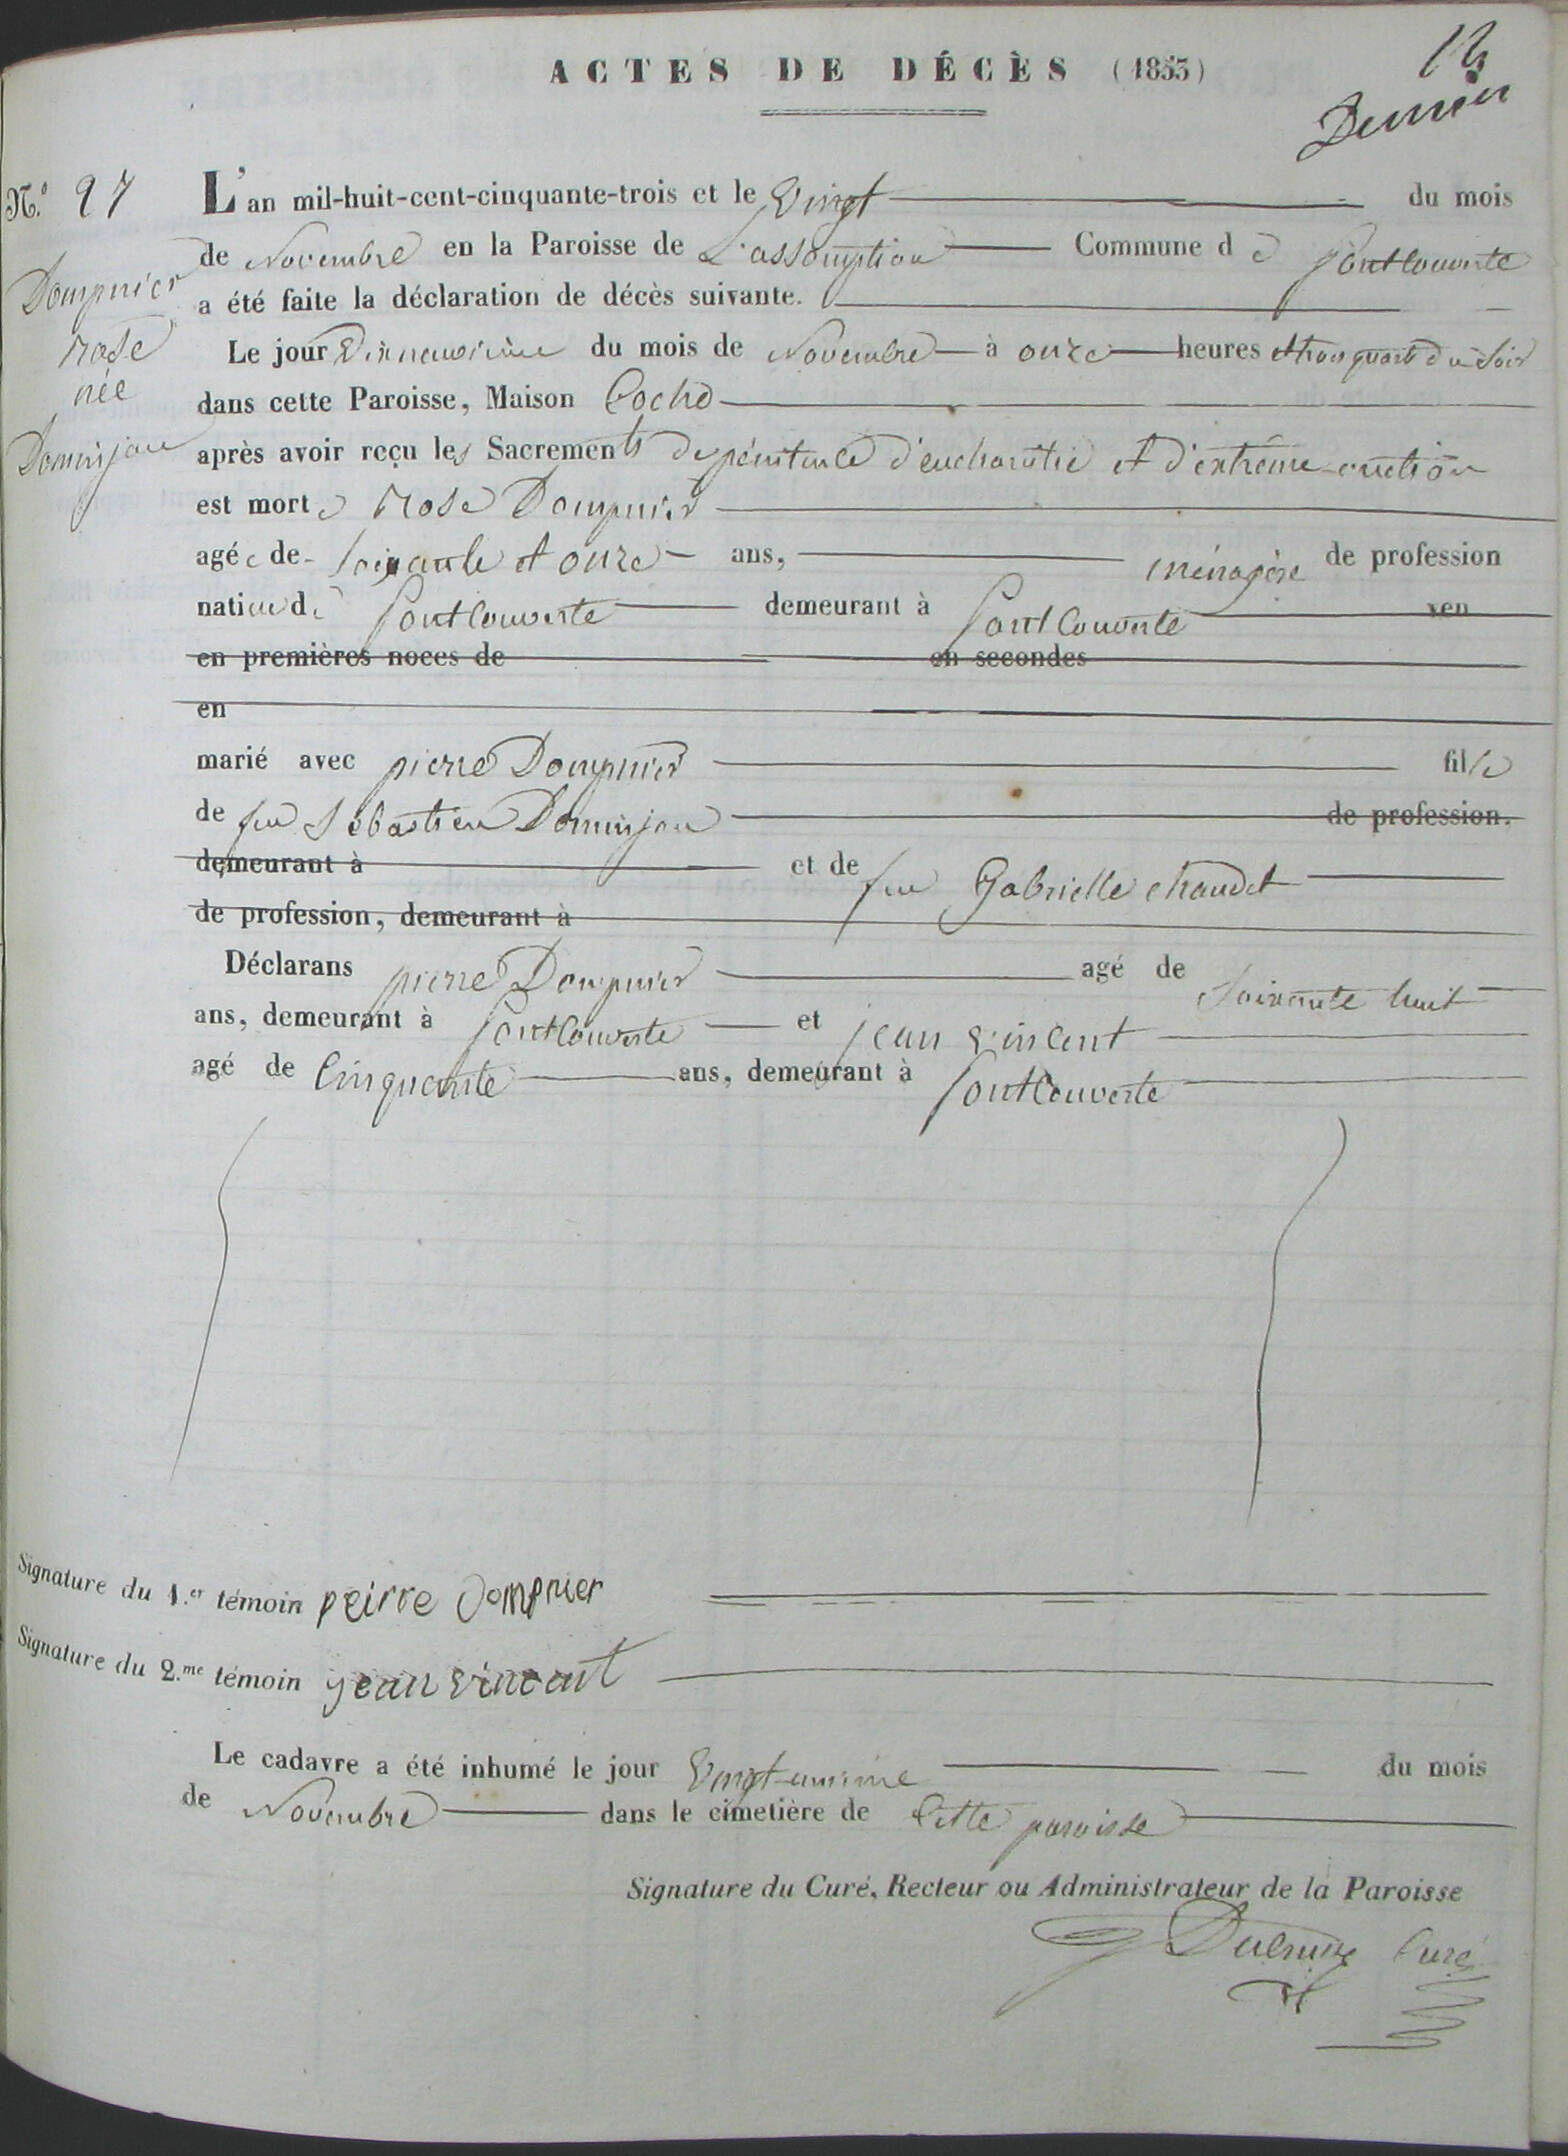 ACTES DE DÉCÈS (1853)
13
N.º 27
Dompnier
rose
née
Dominjon
L'an mil-huit-cent-cinquante-trois et le vingt du mois
de Novembre en la Paroisse de L'assomption Commune de Pontcouverte
a été faite la déclaration de décès suivante.
Le jour Dixneuvième du mois de Novembre à onze heures et trois quarts du soir
dans cette Paroisse, Maison Coche
après avoir reçu les Sacrements de pénitence d'eucharistie et d'extrême onction
est morte rose Dompnier
agée de soixante et onze ans, ménagère de profession
native de Pontcouverte demeurant à Pontcouverte veu
en premières noces de en secondes
en
marié avec pierre Dompnier fille
de feu Sébastien Dominjon de profession.
demeurant à et de feu Gabrielle chaudet
de profession, demeurant à
Déclarans pierre Dompnier agé de soixante huit
ans, demeurant à Pontcouverte et jean vincent
agé de cinquante ans, demeurant à Pontcouverte
Signature du 1.er témoin peirre dompnier
Signature du 2.me témoin jean vincent
Le cadavre a été inhumé le jour vingt-unième du mois
de Novembre dans le cimetière de cette paroisse
Signature du Curé, Recteur ou Administrateur de la Paroisse
Curé